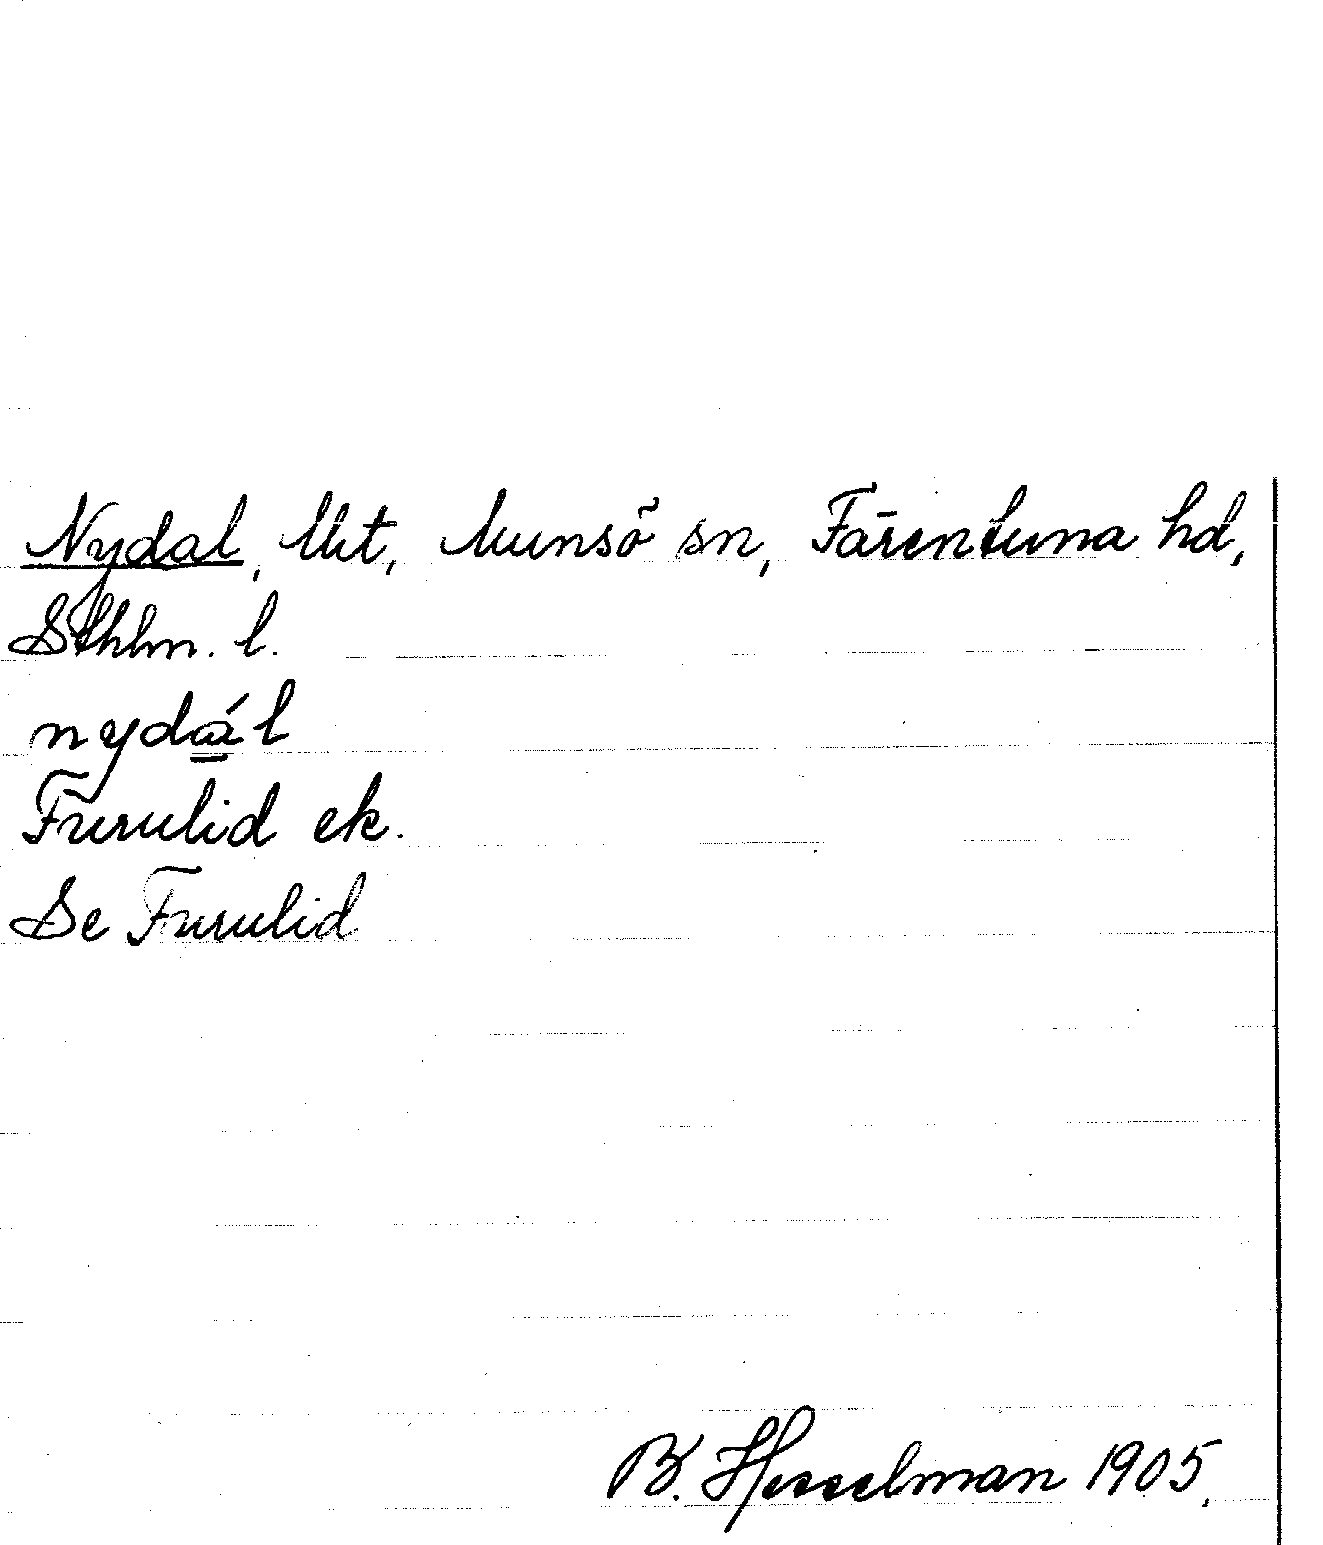 Nydal, Utt, Munsö sn, Färentuna hd,
Sthlm. l.
nydál
Furulid ek.
Se Furulid
B. Hesselman 1905.